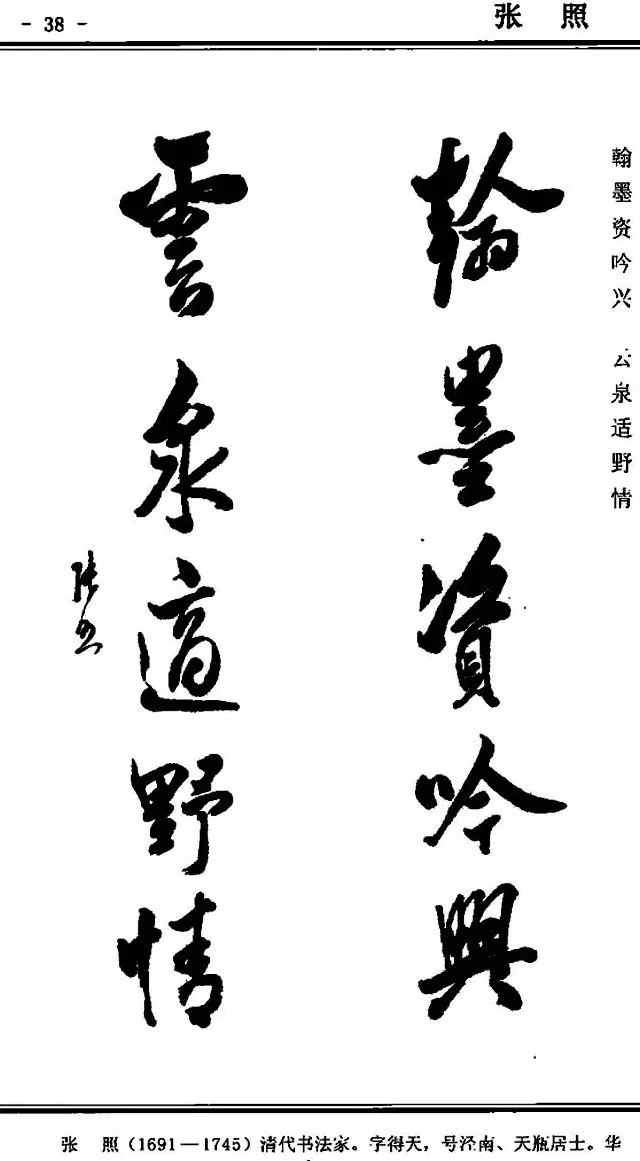 - 38 -
张 照
翰墨资吟兴 云泉适野情
翰墨資吟興
雲泉適野情
张照
张 照(1691—1745)清代书法家。字得天,号泾南、天瓶居士。华